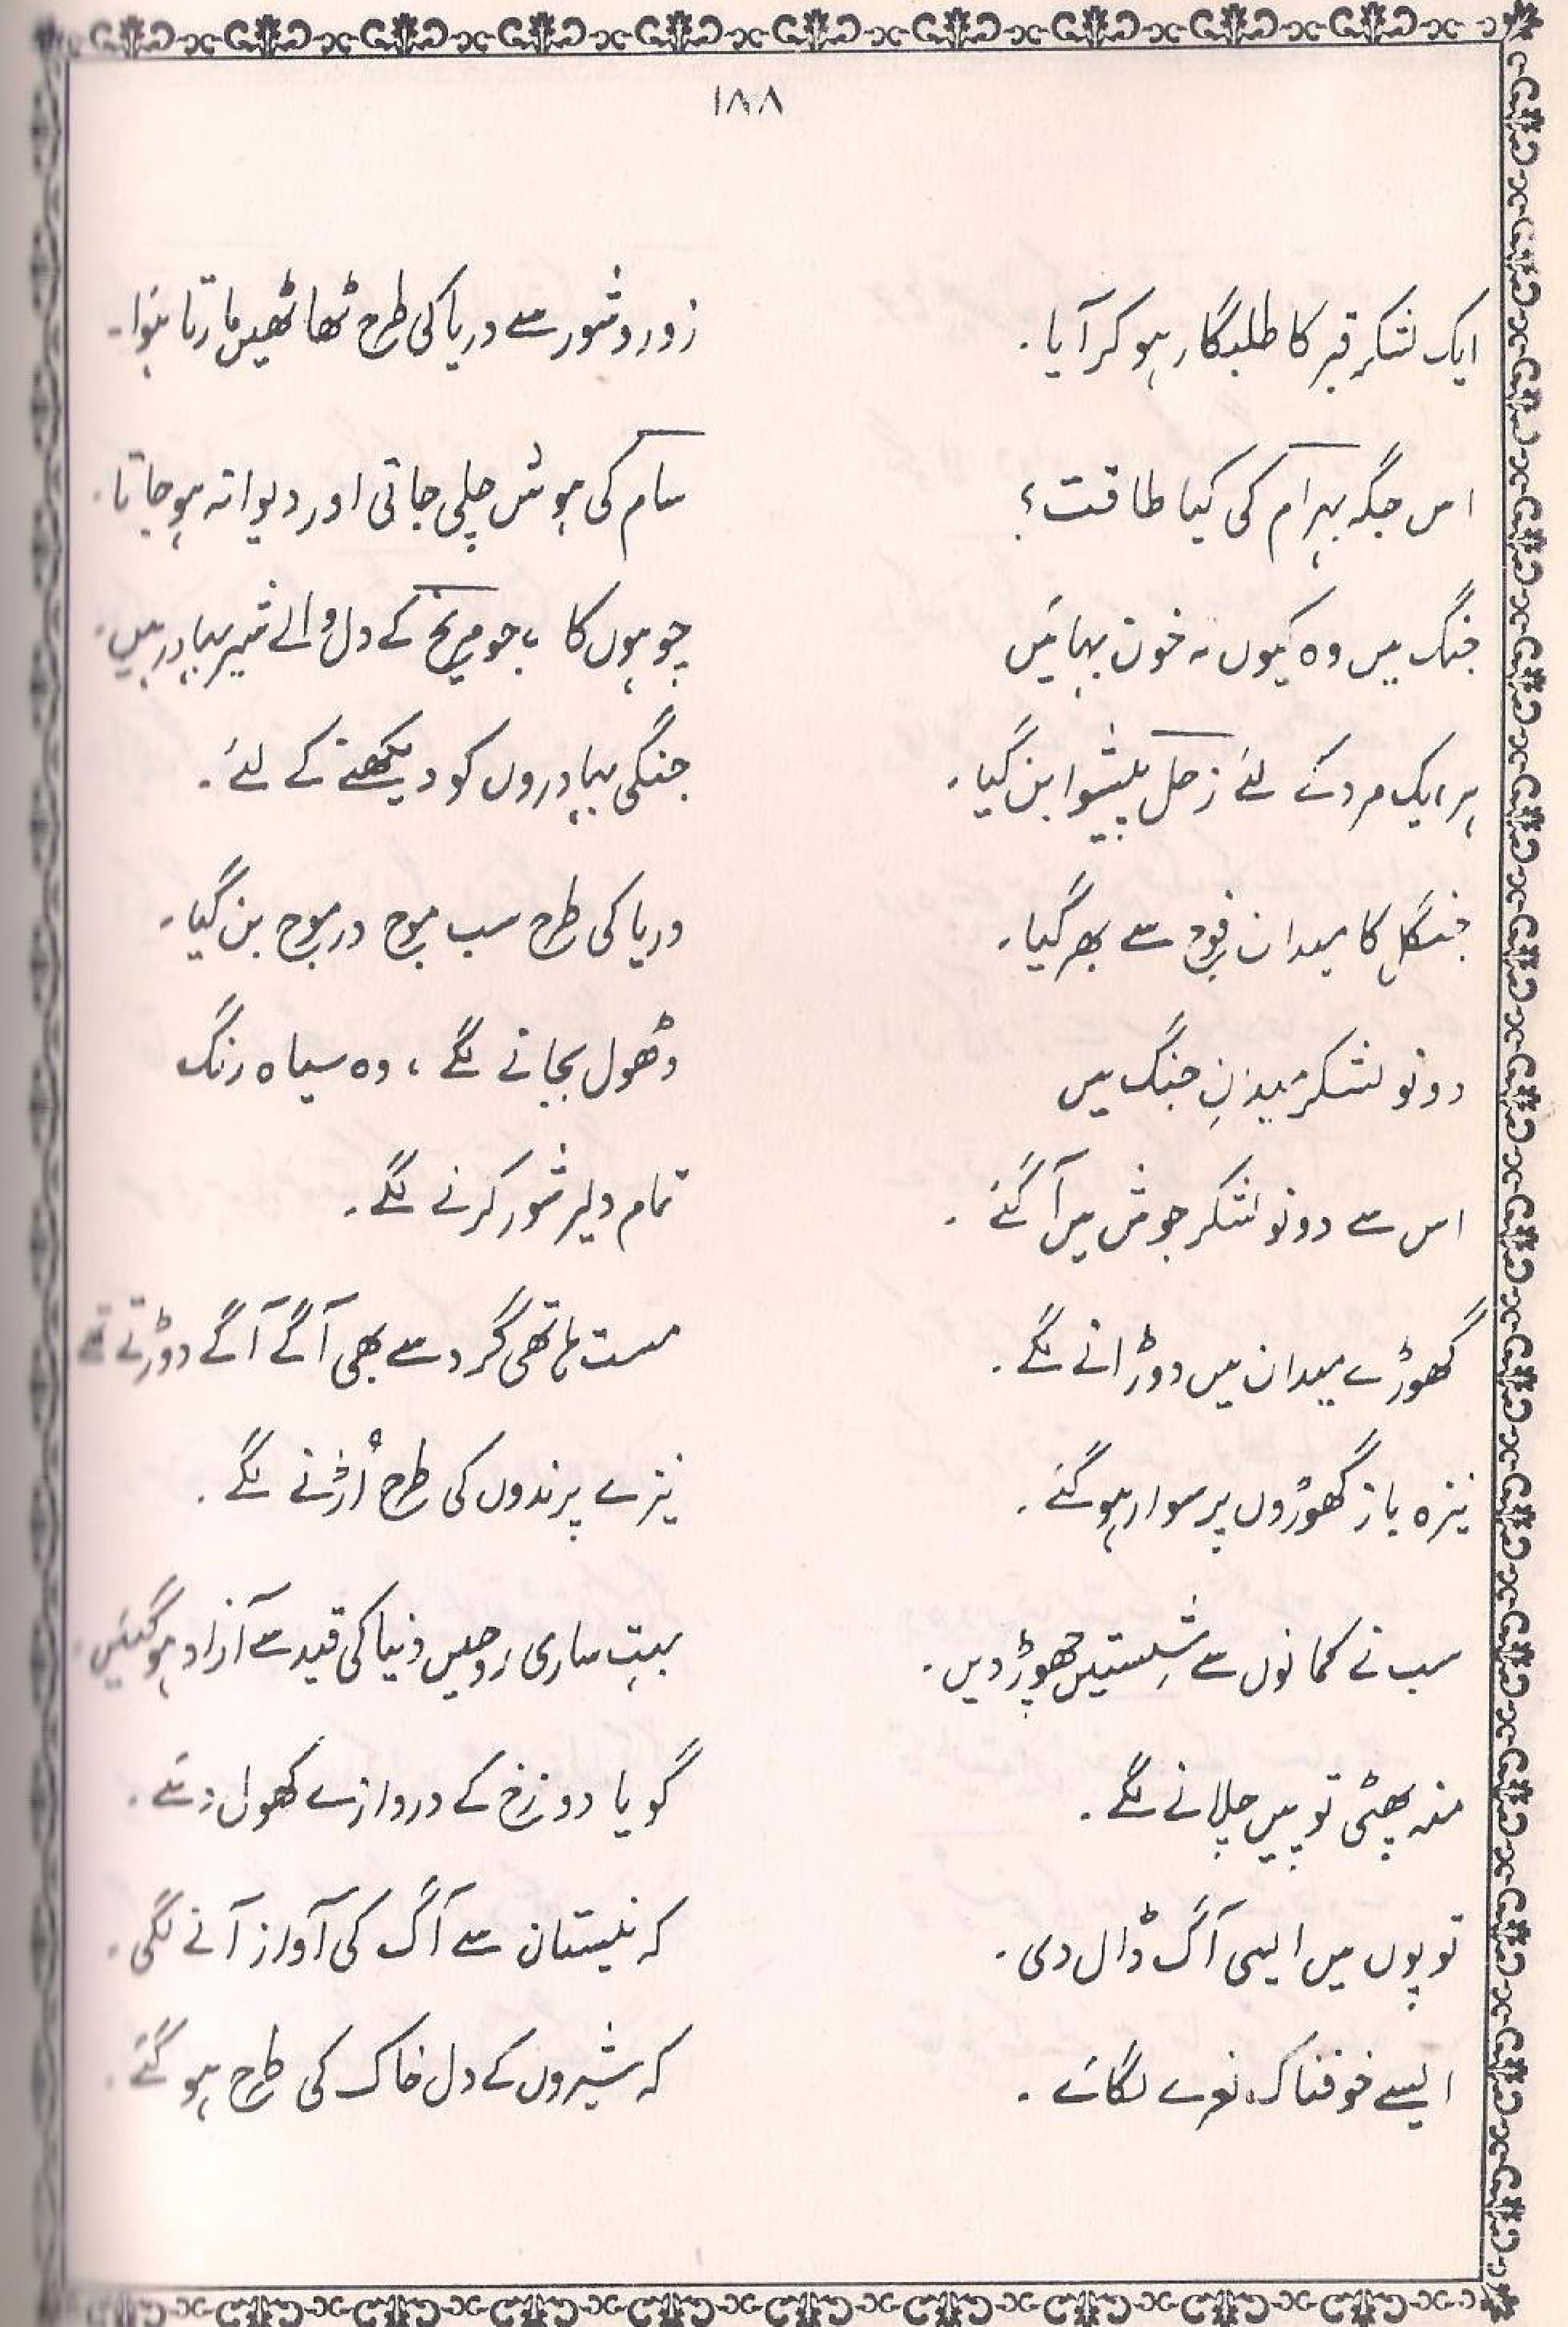 ۱۸۸
ایک لشکر قبر کا طلبگار ہو کر آیا۔
زور و شور سے دریا کی طرح ٹھاٹھیں مارتا ہوا۔
اس جگہ بہرام کی کیا طاقت؟
سام کی ہوش چلی جاتی اور دیوانہ ہو جاتا۔
جنگ میں وہ کیوں نہ خون بہائیں
چوہوں کا، جو مریخ کے دل والے شیر بہادر ہیں۔
ہر ایک مرد کے لئے زحل پیشوا بن گیا۔
جنگی بہادروں کو دیکھنے کے لئے۔
جنگل کا میدان فوج سے بھر گیا۔
دریا کی طرح سب موج در موج بن گیا۔
دونو لشکر میدنِ جنگ میں
ڈھول بجانے لگے، وہ سیاہ رنگ
اس سے دونو لشکر جوش میں آ گئے۔
تمام دلیر شور کرنے لگے۔
گھوڑے میدان میں دوڑانے لگے۔
مست ہاتھی گرد سے بھی آگے آگے دوڑتے تھے
نیزہ باز گھوڑوں پر سوار ہو گئے۔
نیزے پرندوں کی طرح اُڑنے لگے۔
سب نے کمانوں سے شِستیں چھوڑ دیں۔
بہت ساری روحیں دُنیا کی قید سے آزاد ہو گئیں۔
منہ پھٹی توپیں چلانے لگے۔
گویا دوزخ کے دروازے کھول دئے۔
توپوں میں ایسی آگ ڈال دی۔
کہ نیستان سے آگ کی آواز آنے لگی۔
ایسے خوفناک نعرے لگائے۔
کہ شیروں کے دل خاک کی طرح ہو گئے۔